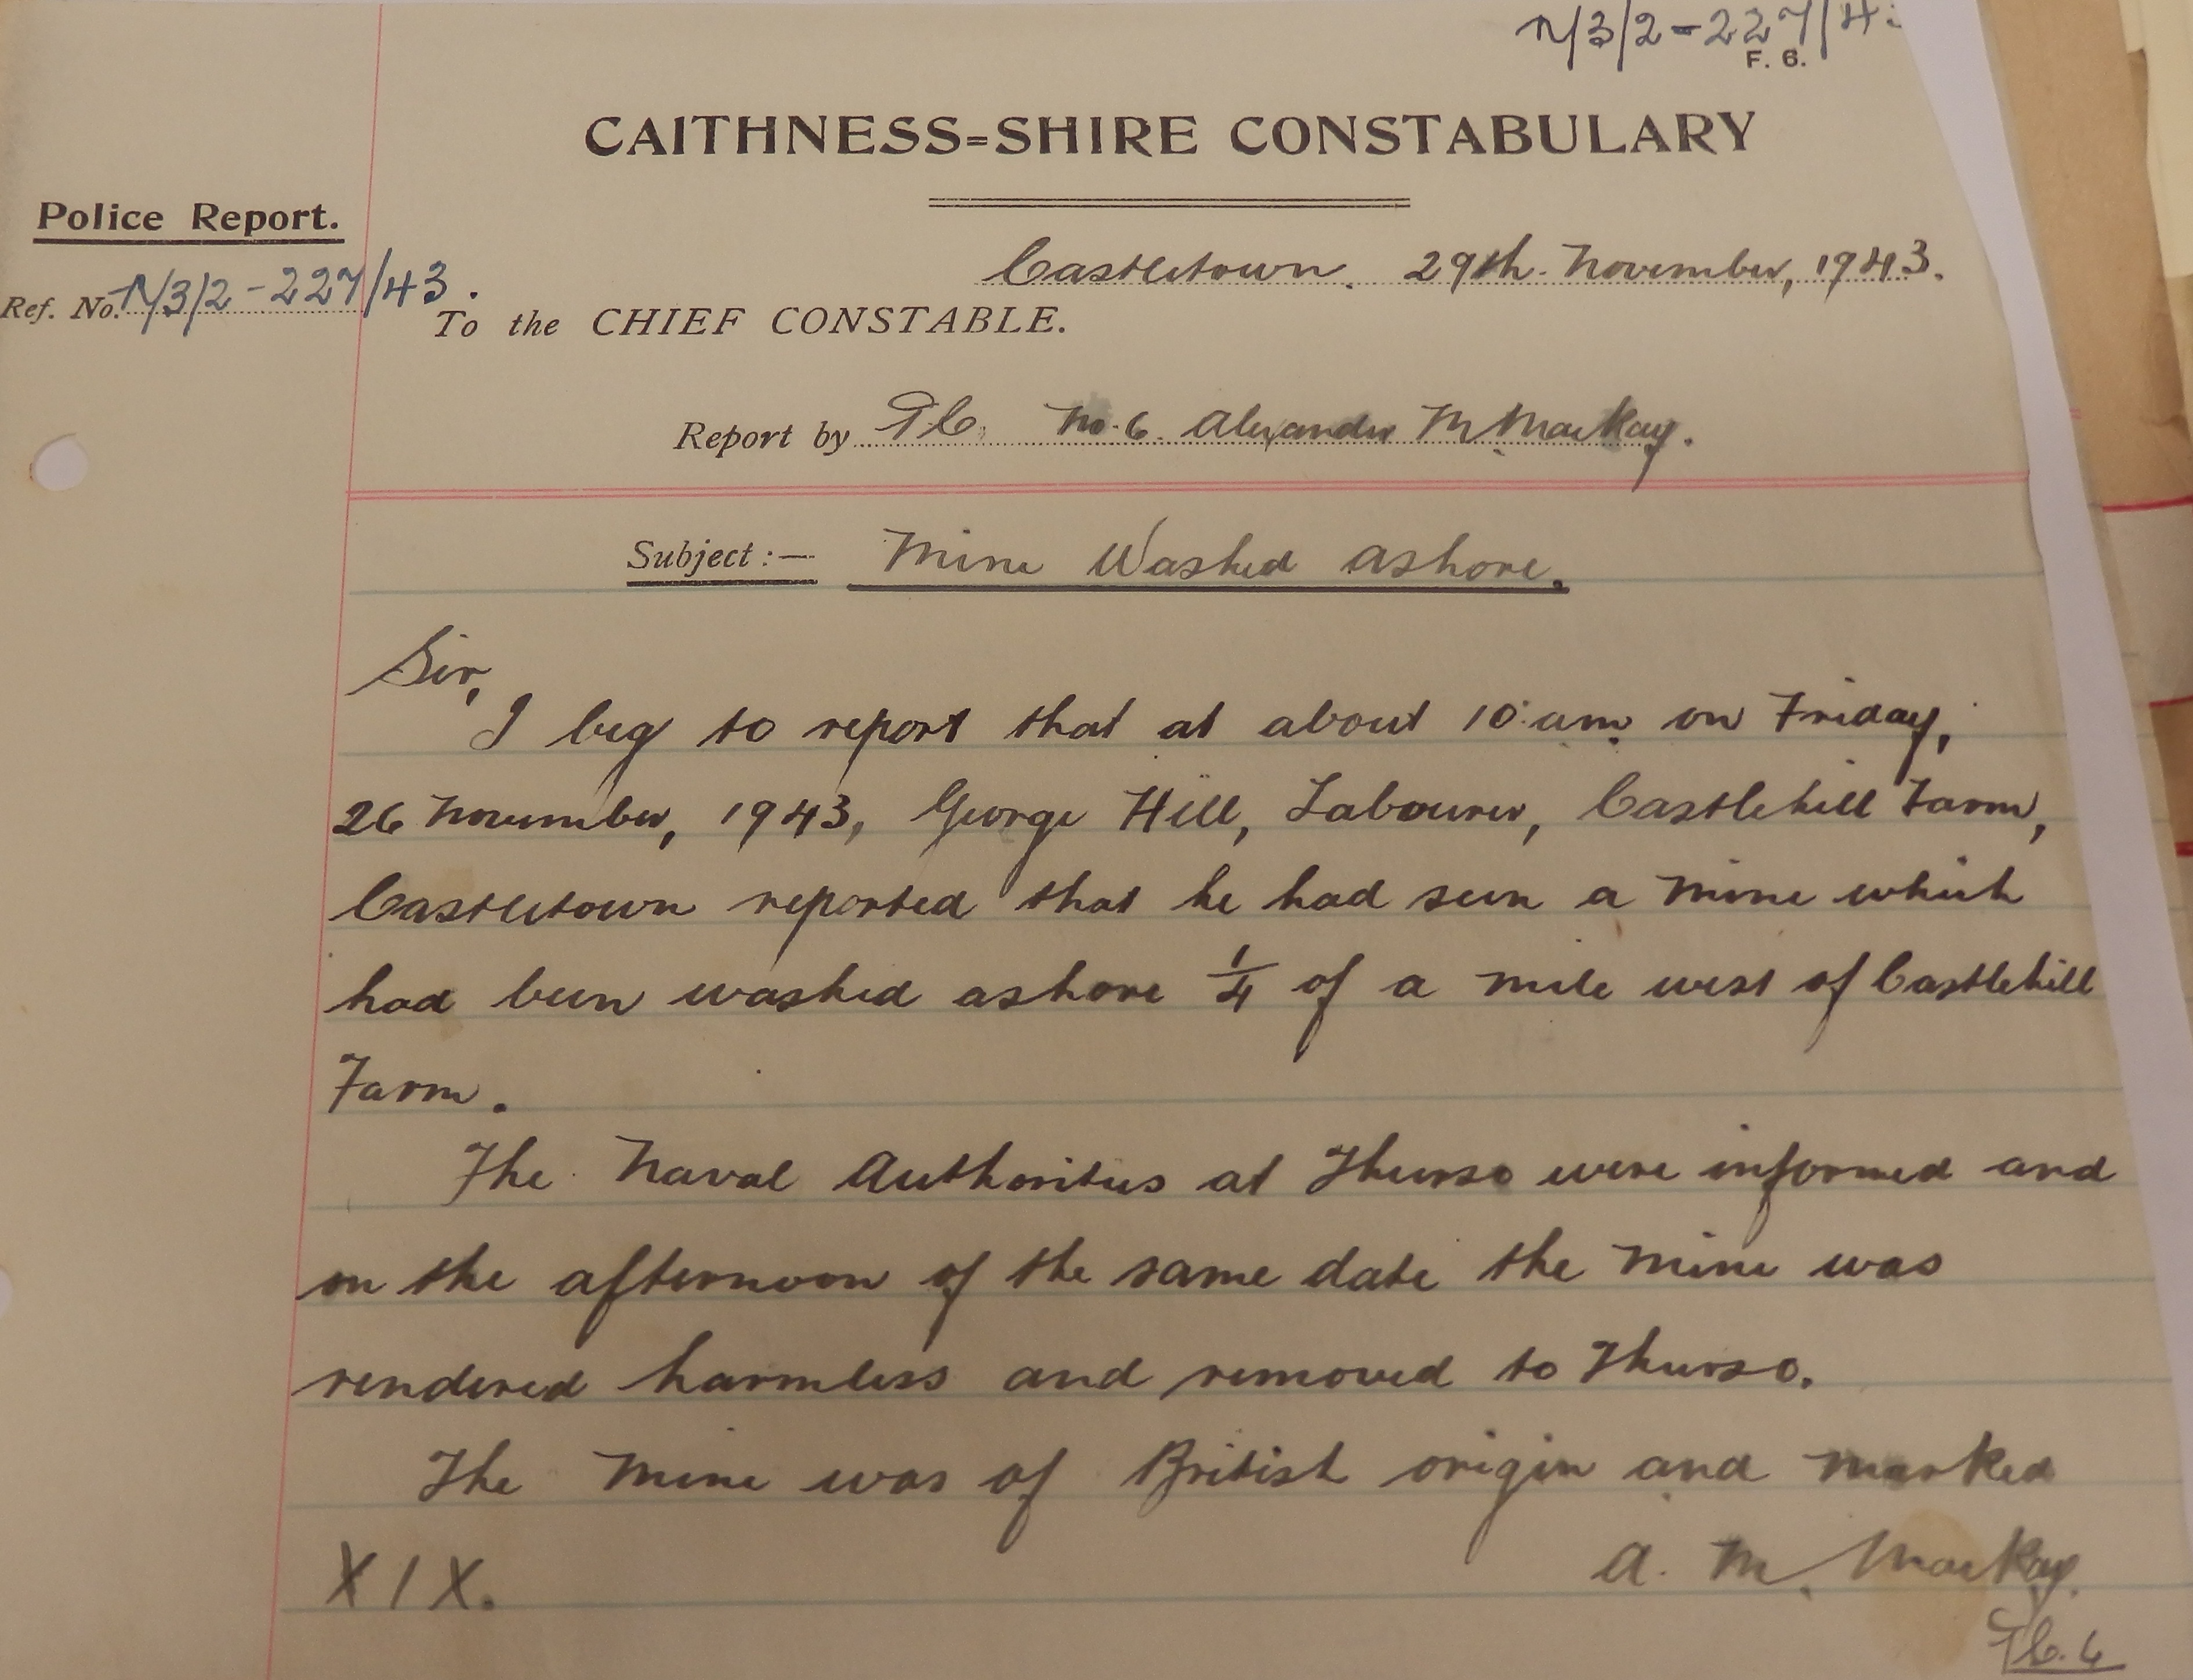 N/3/2-227/4
F. 6.
CAITHNESS=SHIRE CONSTABULARY
Police Report.
Castletown. 29th. November, 1943.
Ref. No. N/3/2-227/43.
To the CHIEF CONSTABLE.
Report by P.C. No. 6. Alexander M. MacKay.
Subject:— Mine Washed ashore.
Sir,
I beg to report that at about 10 am on Friday,
26 November, 1943, George Hill, Labourer, Castlehill Farm,
Castletown reported that he had seen a mine which
had been washed ashore 1/4 of a mile west of Castlehill
Farm.
The Naval Authorities at Thurso were informed and
on the afternoon of the same date the mine was
rendered harmless and removed to Thurso.
The mine was of British origin and marked
XIX.
A. M. MacKay.
P.C. 6